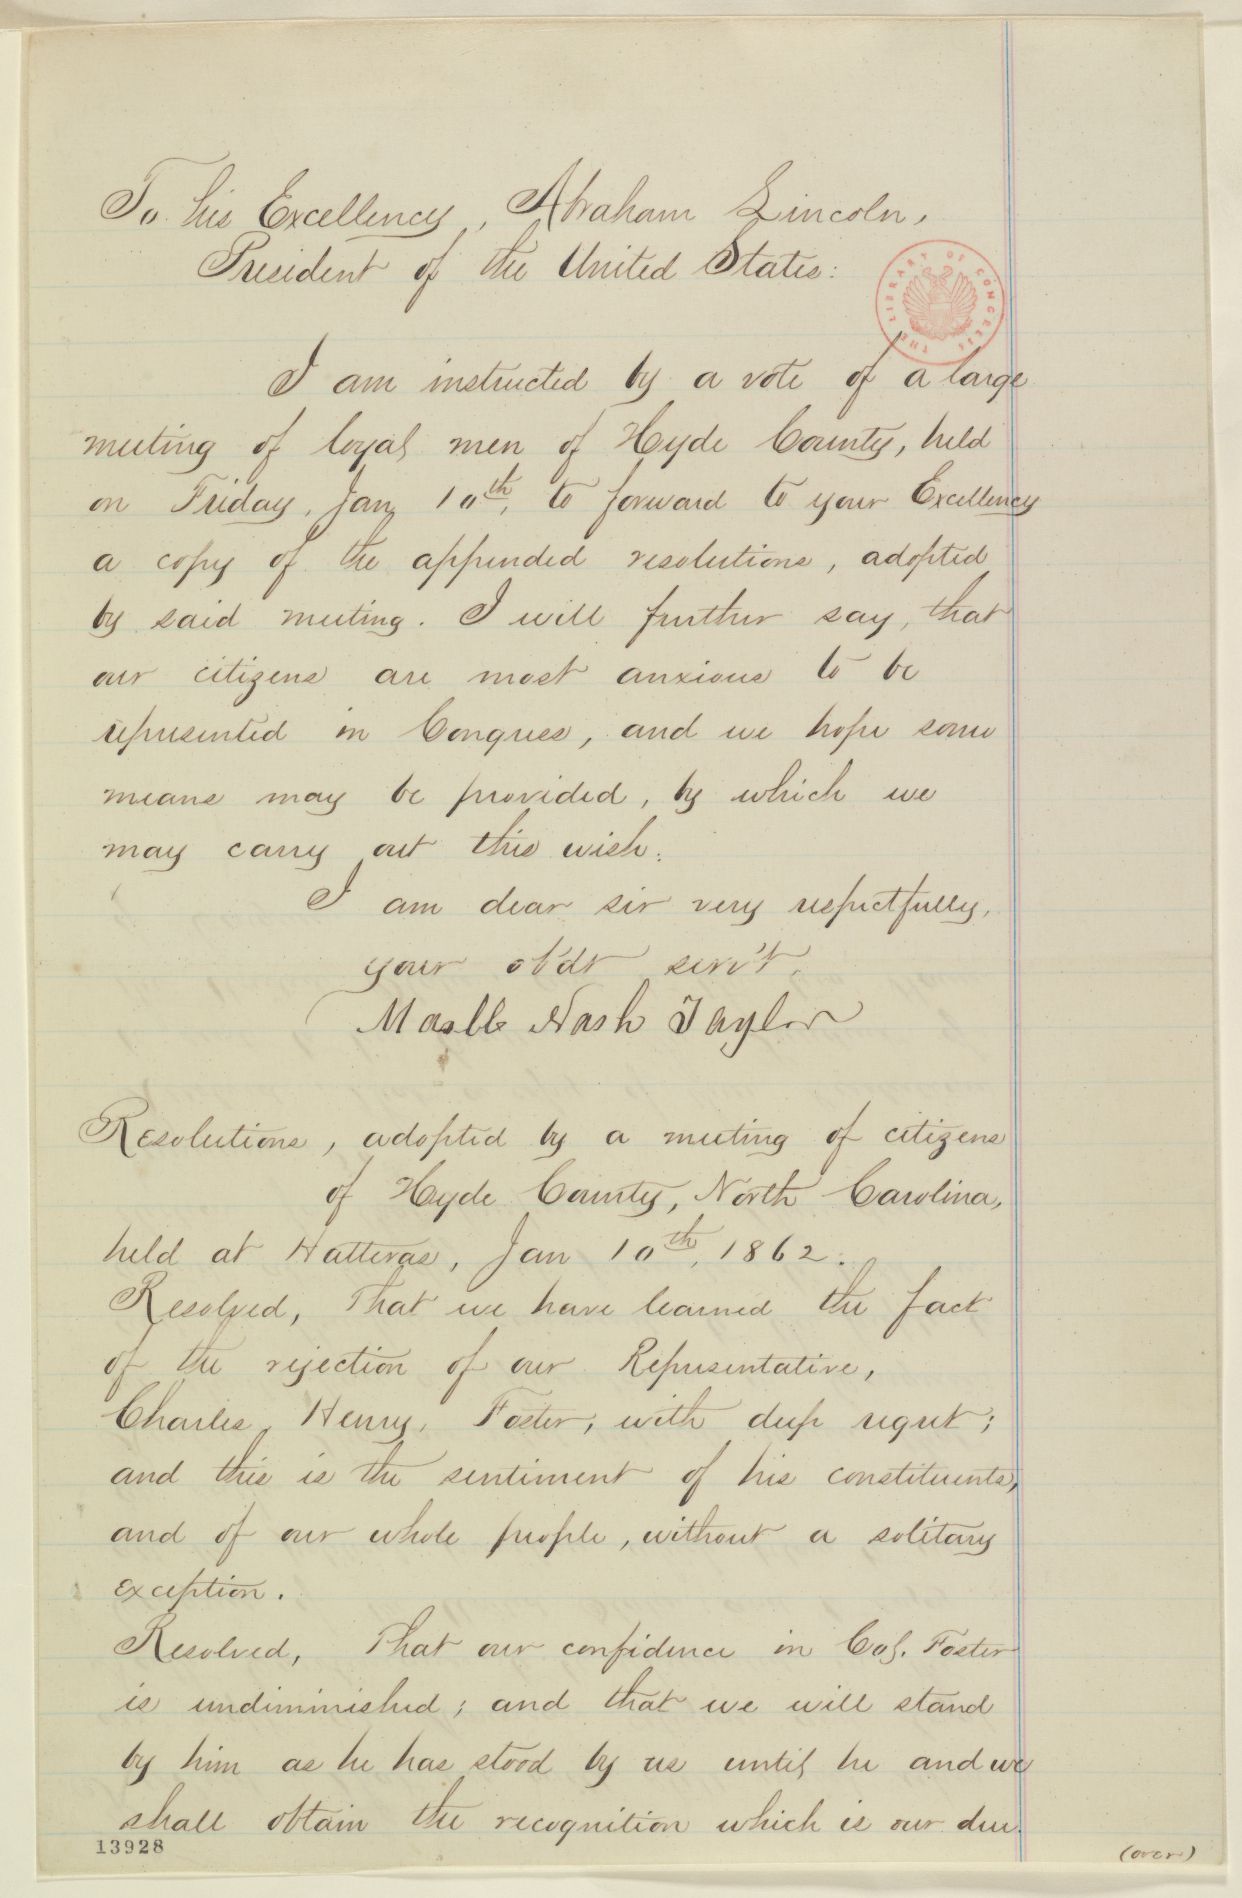 To his Excellency, Abraham Lincoln,
President of the United States:
THE LIBRARY OF CONGRESS
I am instructed by a vote of a large
meeting of loyal men of Hyde County, held
on Friday, Jan 10th, to forward to your Excellency
a copy of the appended resolutions, adopted
by said meeting. I will further say, that
our citizens are most anxious to be
represented in Congress, and we hope some
means may be provided, by which we
may carry out this wish.
I am dear sir very respectfully,
your ob'dt serv't,
Marble Nash Taylor
Resolutions, adopted by a meeting of citizens
of Hyde County, North Carolina,
held at Hatteras, Jan 10th, 1862:
Resolved, That we have learned the fact
of the rejection of our Representative,
Charles Henry Foster, with deep regret;
and this is the sentiment of his constituents,
and of our whole people, without a solitary
exception.
Resolved, That our confidence in Col. Foster
is undiminished; and that we will stand
by him as he has stood by us until he and we
shall obtain the recognition which is our due.
13928
(over)